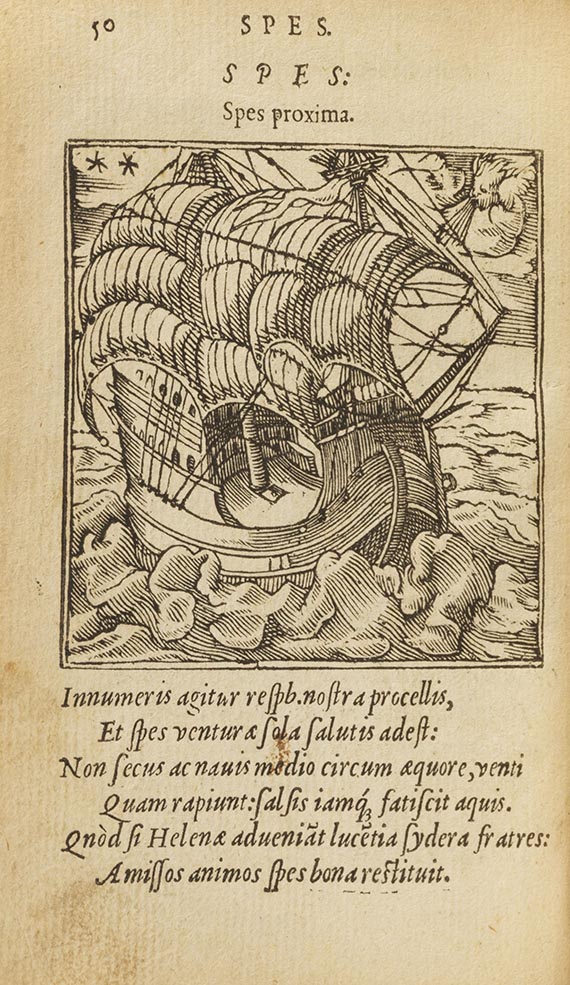 50
SPES.
SPES:
Spes proxima.
Innumeris agitur reſpb. noſtra procellis,
Et ſpes venturæ ſola ſalutis adeſt:
Non ſecus ac nauis medio circum æquore, venti
Quam rapiunt: ſalſis iamq́; fatiſcit aquis.
Qnòd ſi Helenæ adueniãt lucẽtia ſydera fratres:
Amiſſos animos ſpes bona reſtituit.